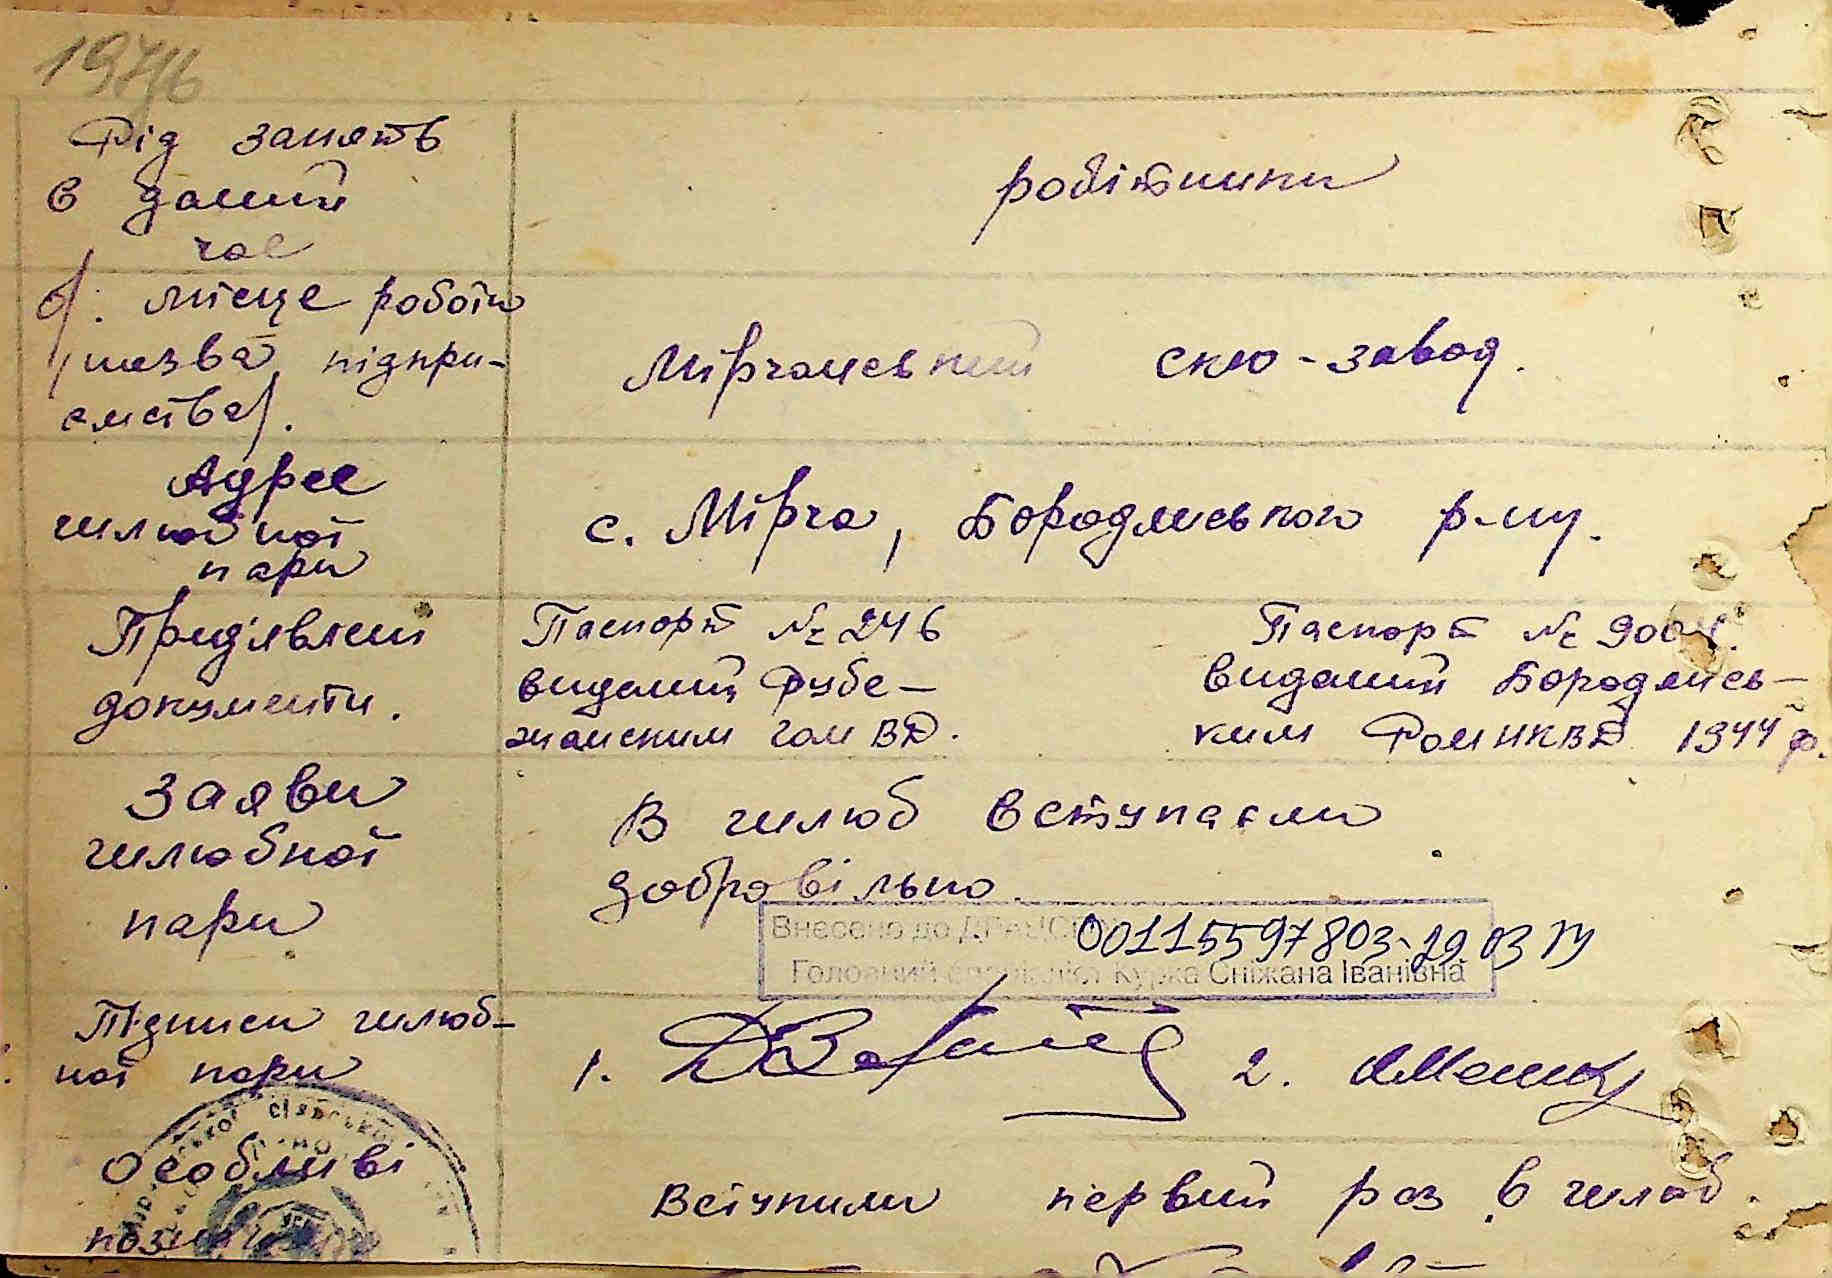 1946
Рід занять
в даний
час
робітники
б/. місце роботи
/назва підпри-
ємства/.
Мірчанський скло-завод.
Адрес
шлюбної
пари
с. Мірча, Бородянського р-ну.
Пред'явлені
документи.
Паспорт № 246
виданий Рубе-
жанским ВД.
Паспорт №
виданий Бородянсь-
ким НКВД 1944 р.
Заяви
шлюбної
пари
В шлюб вступаєми
добровільно
Внесено до 00115597803-29 03
Головний спеціаліст Курка Сніжана Іванівна
Підписи шлюб-
ної пари
1.
2.
сільської
Особливі
Вступили первий раз в шлюб.